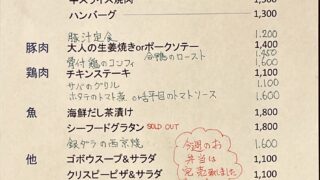 牛スライス焼肉 1,300
ハンバーグ 1,300
豚汁定食 1.200
豚肉 大人の生姜焼きorポークソテー 1,400
骨付鶏のコンフィ 合鴨のロースト 1,450 1600
鶏肉 チキンステーキ 1,100
サバのグリル 1,100
ホタテのトマト煮 or 舌平目のトマトソース 1,600
魚 海鮮だし茶漬け 1,800
シーフードグラタン SOLD OUT 1,100
銀ダラの西京焼 1,600
他 ゴボウスープ&サラダ 1,100
クリスピーピザ&サラダ 1,100
今週のお
弁当は
完売致しました